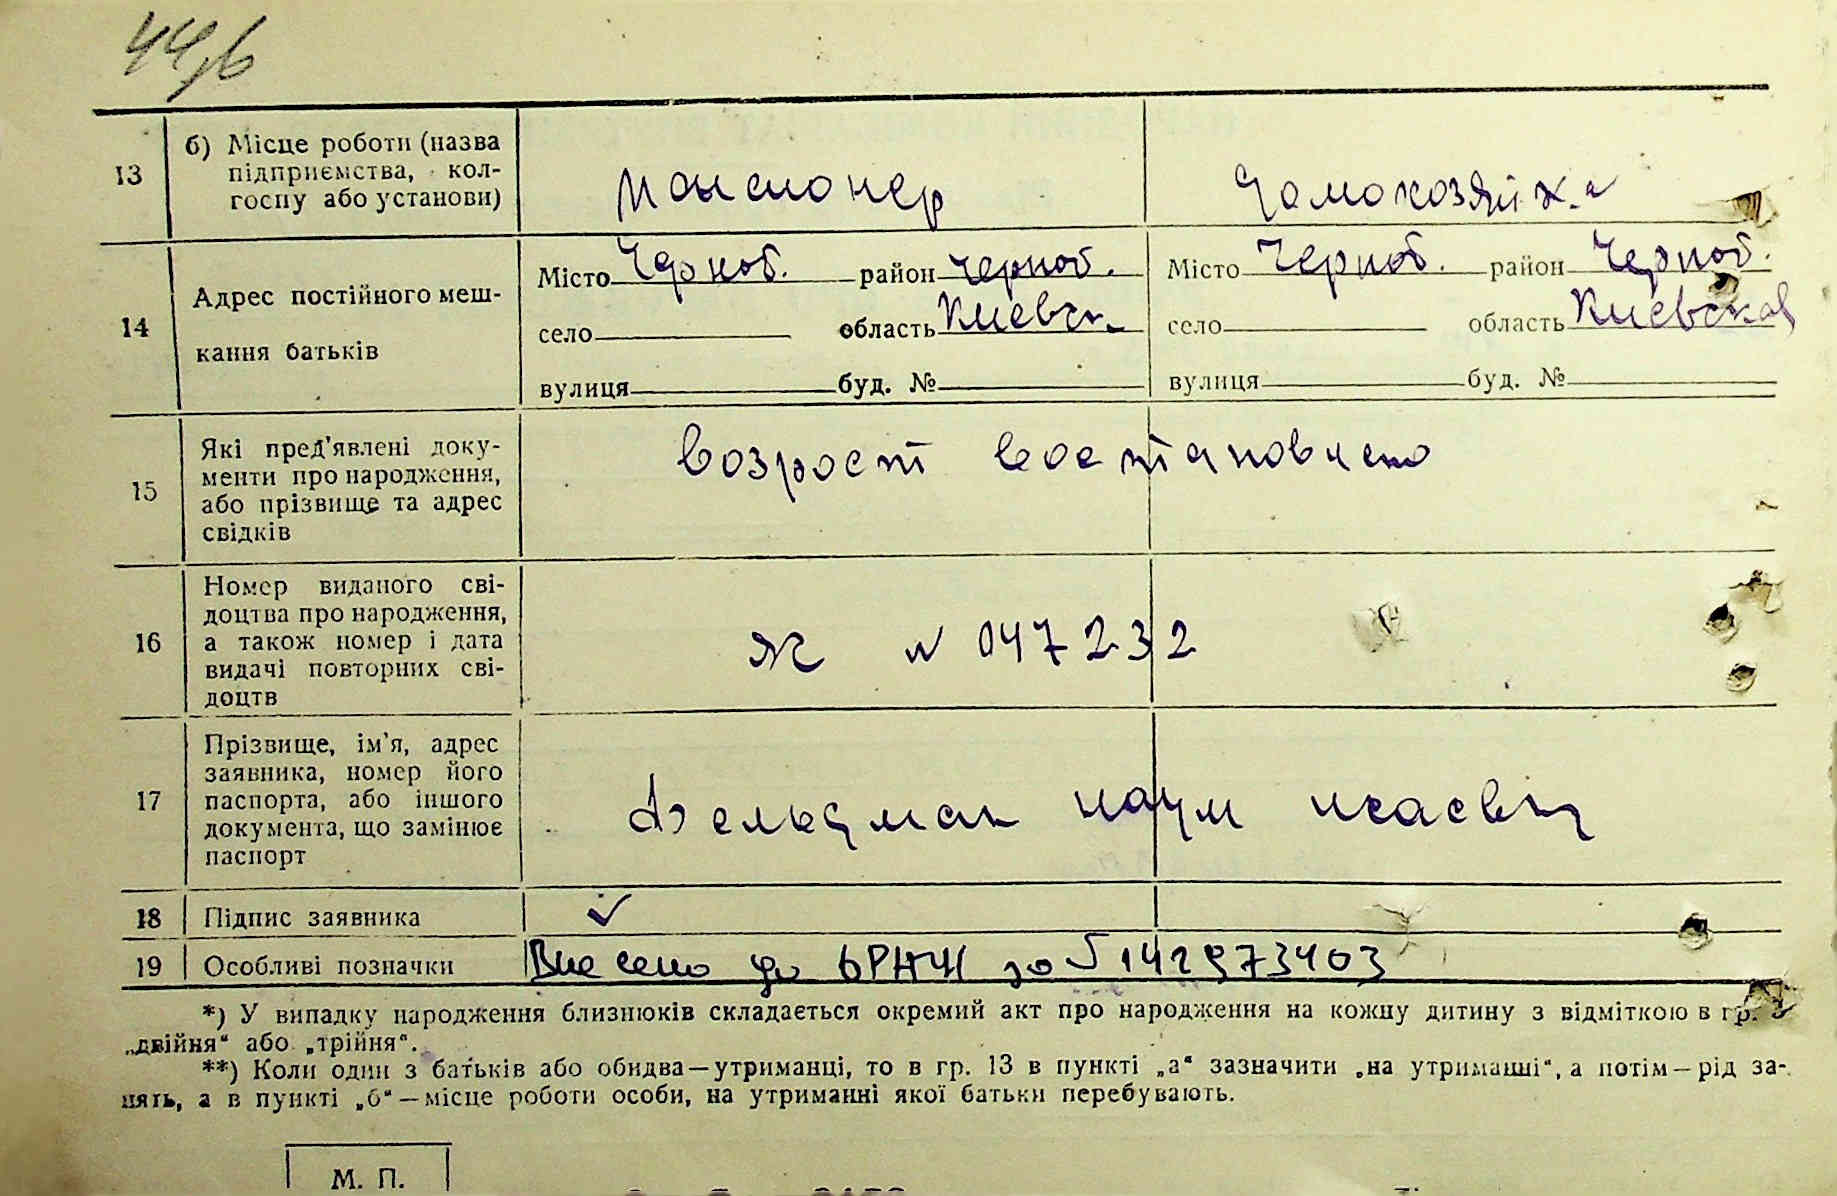 44,6
13 б) Місце роботи (назва
підприємства, кол-
госпу або установи)
пансионер домохозяйка
14 Адрес постійного меш-
кання батьків
Місто Черноб. район Черноб. Місто Черноб. район Черноб.
село область Киевск. село область Киевская
вулиця буд. № вулиця буд. №
15 Які пред'явлені доку-
менти про народження,
або прізвище та адрес
свідків
возрост востановлено
16 Номер виданого сві-
доцтва про народження,
а також номер і дата
видачі повторних сві-
доцтв
N 047232
17 Прізвище, ім'я, адрес
заявника, номер його
паспорта, або іншого
документа, що замінює
паспорт
Фельдман наум исаевич
18 Підпис заявника ✓
19 Особливі позначки Внесено до за 142973403
*) У випадку народження близнюків складається окремий акт про народження на кожну дитину з відміткою в гр.
„двійня“ або „трійня“.
**) Коли один з батьків або обидва—утриманці, то в гр. 13 в пункті „а“ зазначити „на утриманні“, а потім—рід за-
нять, а в пункті „б“—місце роботи особи, на утриманні якої батьки перебувають.
М. П.